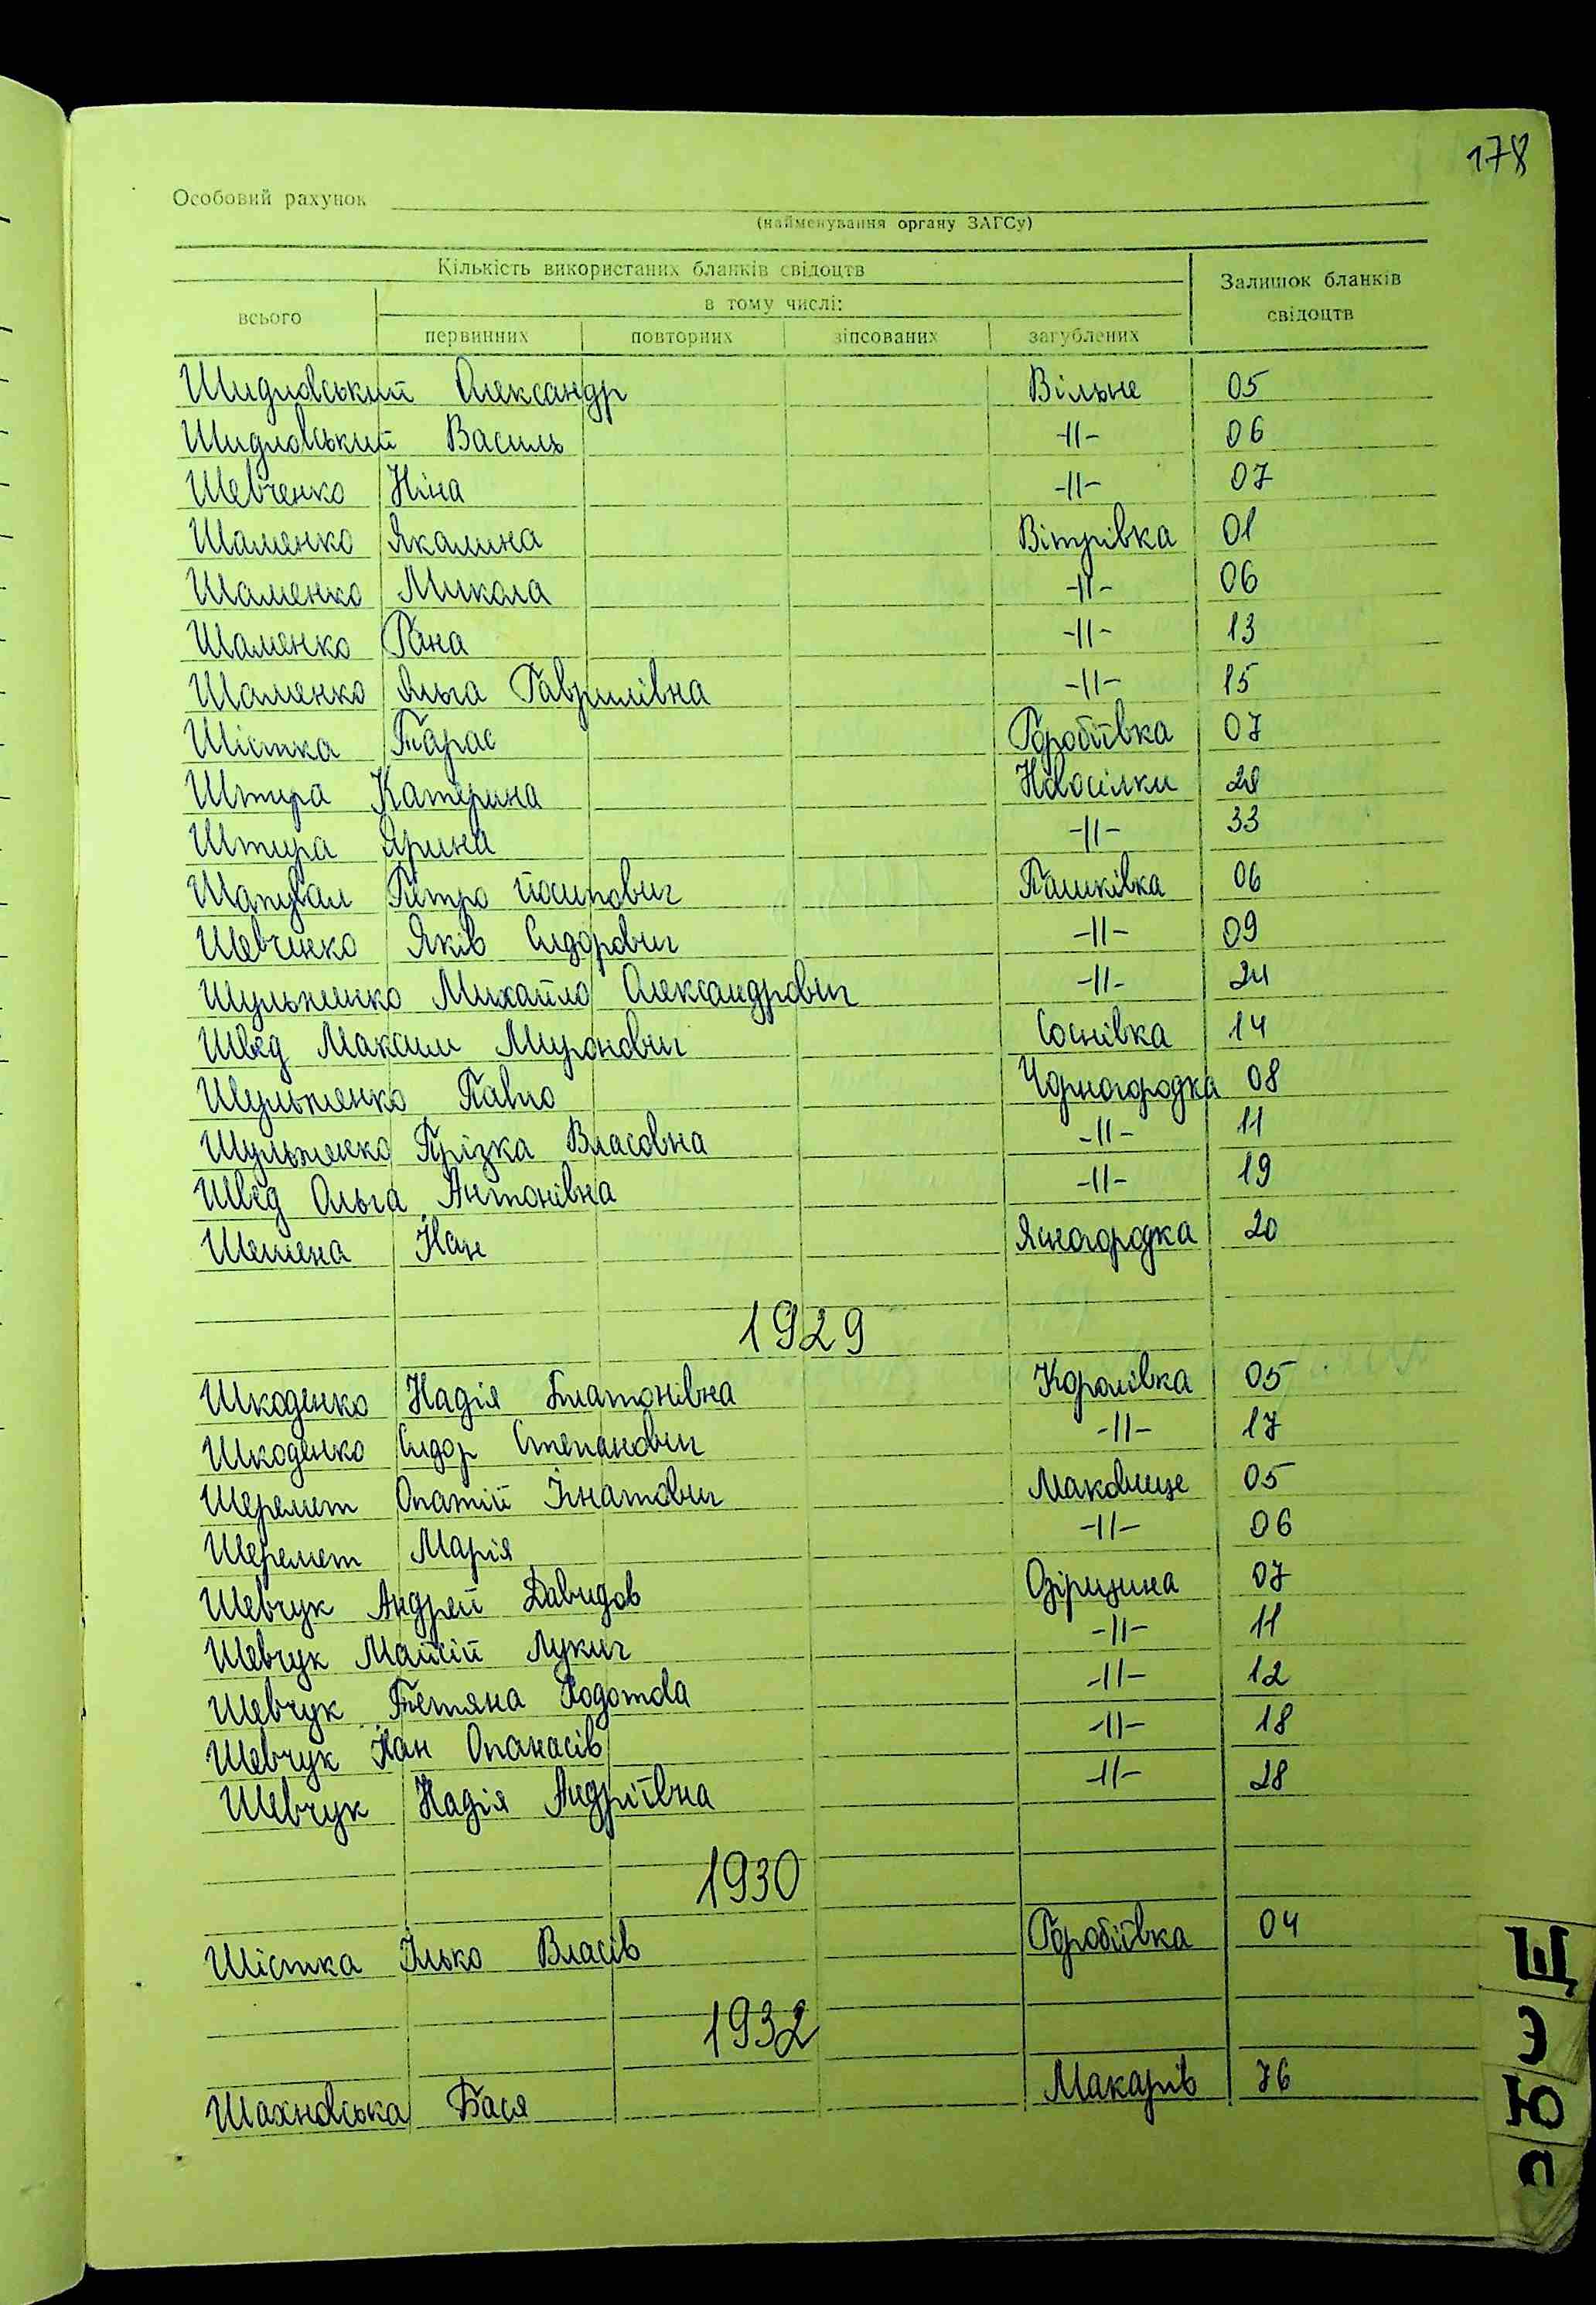 178
Особовий рахунок
(найменування органу ЗАГСу)
Кількість використаних бланків свідоцтв
Залишок бланків свідоцтв
всього
в тому числі:
первинних повторних зіпсованих загублених
Шидловський Олександр Вільне 05
Шидловський Василь -11- 06
Шевченко Ніна -11- 07
Шаменко Якалина Вітрівка 01
Шаменко Микола -11- 06
Шаменко Гана -11- 13
Шаменко Яльга Гаврилівна -11- 15
Шістка Тарас Горобіївка 07
Штира Катерина Новосілки 28
Штира Ярина -11- 33
Шаповал Петро Йосипович Пашківка 06
Шевченко Яків Сидорович -11- 09
Шульженко Михайло Олександрович -11- 24
Швед Максим Миронович Соснівка 14
Шульженко Павло Чорногородка 08
Шульженко Прізка Власовна -11- 11
Швед Ольга Антонівна -11- 19
Шешена Іван Ясногородка 20
1929
Шкоденко Надія Платонівна Королівка 05
Шкоденко Сидор Степанович -11- 17
Шеремет Опатій Ігнатович Маковище 05
Шеремет Марія -11- 06
Шевчук Андрей Давидов Озірщина 07
Шевчук Мойсій Лукич -11- 11
Шевчук Тетяна Ходотова -11- 12
Шевчук Іван Опанасів -11- 18
Шевчук Надія Андріївна -11- 28
1930
Шістка Ілько Власів Горобіївка 04
1932
Шахновська Бася Макарів 76
Щ
Э
Ю